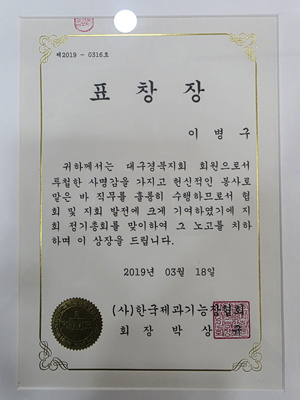 제2019 - 0316호
표 창 장
이 병 구
귀하께서는 대구경북지회 회원으로서
투철한 사명감을 가지고 헌신적인 봉사로
맡은 바 직무를 훌륭히 수행하므로서 협
회 및 지회 발전에 크게 기여하였기에 지
회 정기총회를 맞이하여 그 노고를 치하
하며 이 상장을 드립니다.
2019년 03월 18일
(사)한국제과기능장협회
회 장 박 상 규